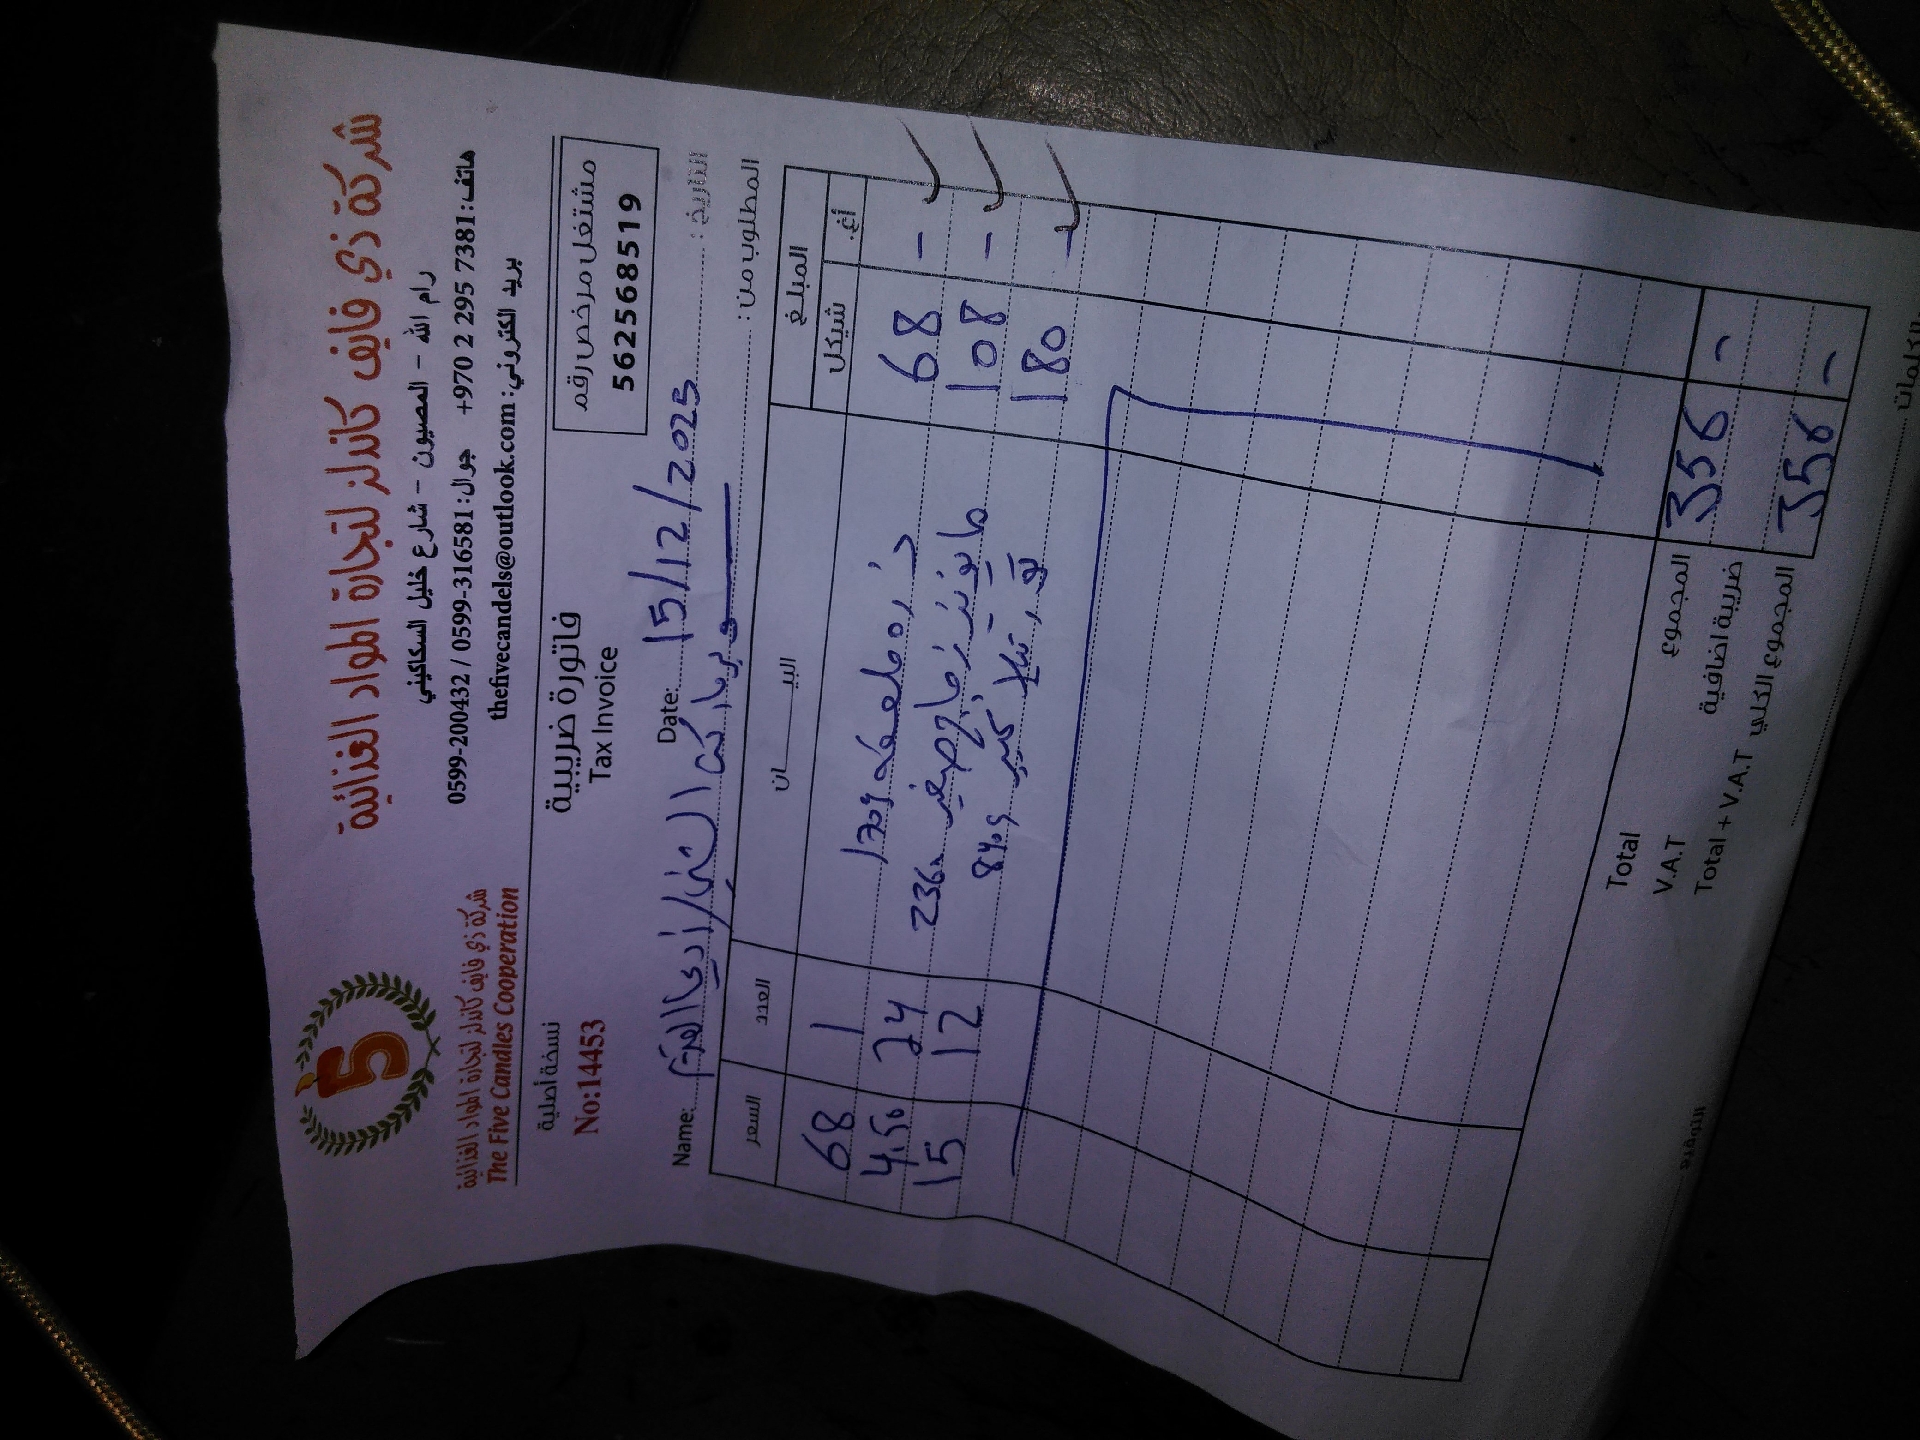 شركة ذي فايف كاندلز لتجارة المواد الغذائية
رام الله - المصيون - شارع خليل السكاكيني
هاتف: +970 2 295 7381 جوال: 0599-200432 / 0599-316581
بريد الكتروني: thefivecandels@outlook.com
5
شركة ذي فايف كاندلز لتجارة المواد الغذائية
The Five Candles Cooperation
مشتغل مرخص رقم
562568519
فاتورة ضريبية
Tax Invoice
نسخة أصلية
No:14453
التاريخ: Date: 15/12/2025
المطلوب من: Name:
المبلغ البيـــــان العدد السعر
أغ. شيكل
- 68 ذره 170g 1 68
- 108 مايونيز صغير 236 24 4,50
- 180 كبير 840g 12 15
- 356 المجموع Total
ضريبة اضافية V.A.T
- 356 المجموع الكلي Total + V.A.T